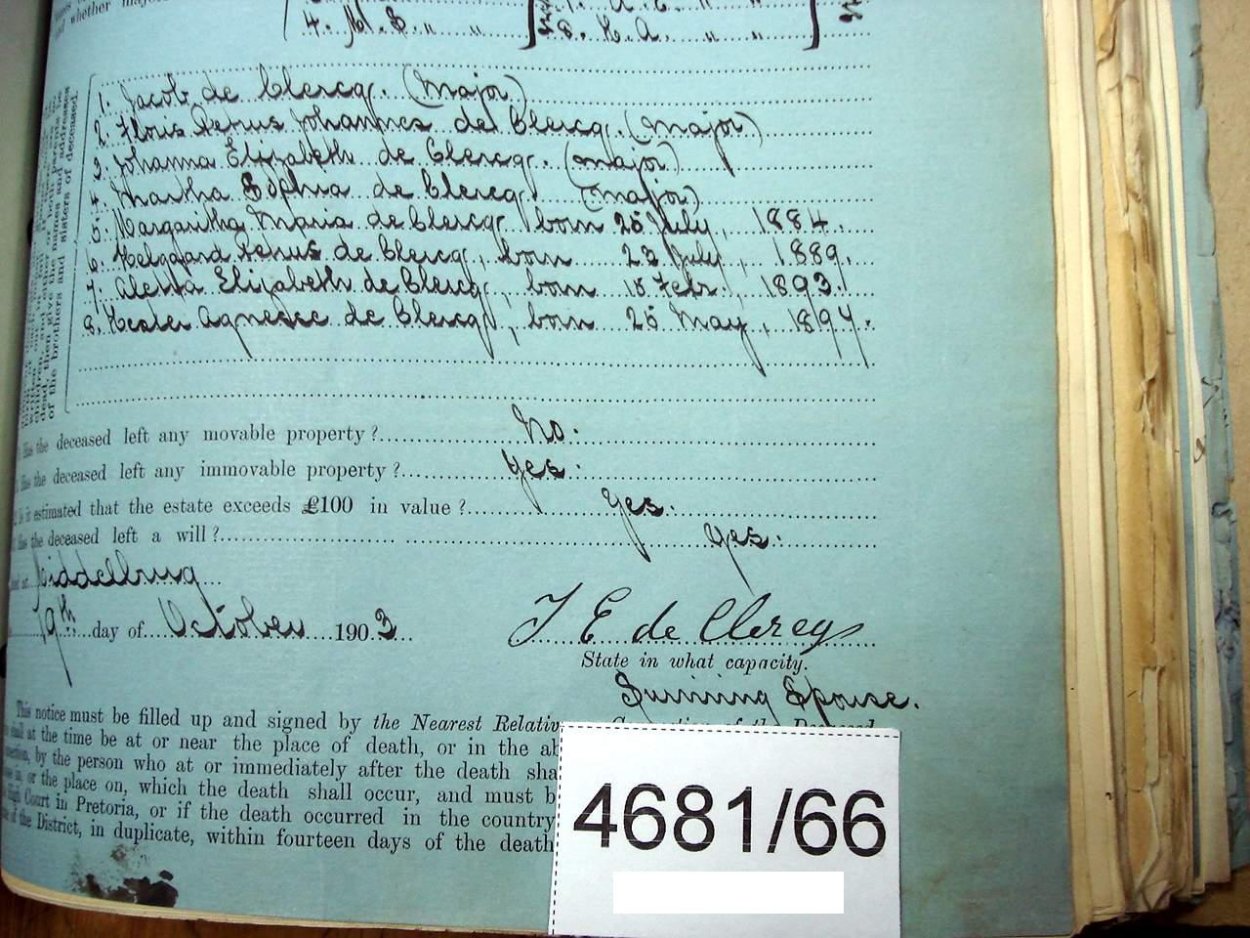 whether
4. M. S. „ „ 8. H. A. „ „
1. Jacob de Clercq. (Major)
2. Floris Petrus Johannes de Clercq. (Major)
3. Johanna Elizabeth de Clercq. (Major)
4. Martha Sophia de Clercq. (Major)
5. Margaritha Maria de Clercq born 25 July, 1884.
6. Helgard Petrus de Clercq, born 23 July, 1889.
7. Aletta Elizabeth de Clercq, born 15 Febr., 1893.
8. Hester de Clercq, born 25 May, 1897.
dead, then give the names and addresses
of the brothers and sisters of deceased.
Has the deceased left any movable property? No.
Has the deceased left any immovable property? Yes.
Is it estimated that the estate exceeds £100 in value? Yes.
Has the deceased left a will? Yes.
at Middelburg
19th day of October 1903
J E de Clercq
State in what capacity.
Surviving Spouse.
This notice must be filled up and signed by the Nearest Relative
shall at the time be at or near the place of death, or in the
by the person who at or immediately after the death
or the place on, which the death shall occur, and must
High Court in Pretoria, or if the death occurred in the country
of the District, in duplicate, within fourteen days of the death
4681/66